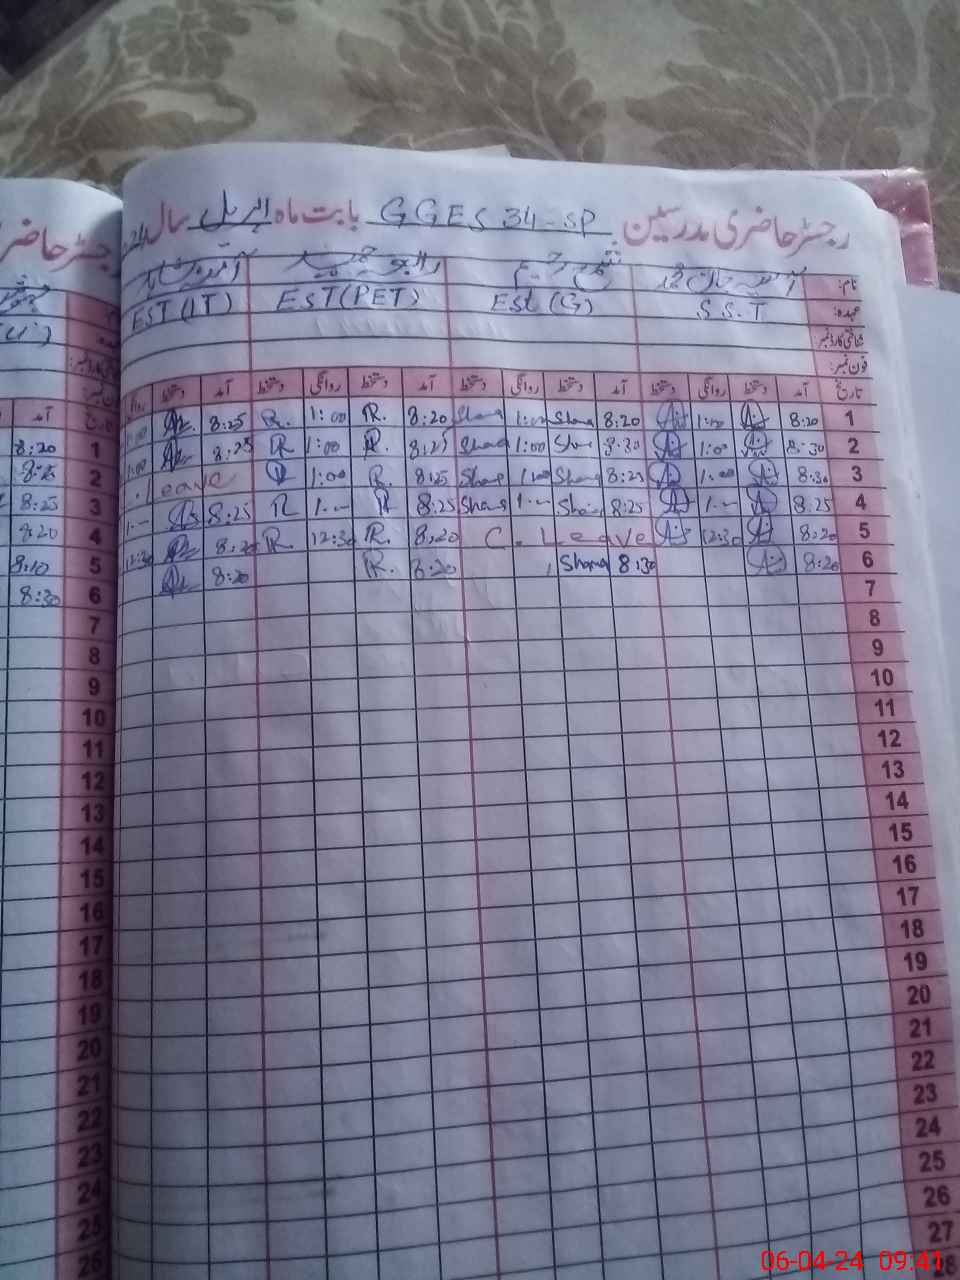 رجسٹر حاضری مدرسین GGES 34-SP بابت ماہ اپریل سال
رجسٹر حاضر
نام:
عہدہ: S.S.T Est (G) EST(PET) EST (IT)
شناختی کارڈ نمبر:
فون نمبر:
تاریخ آمد دستخط روانگی دستخط آمد دستخط روانگی دستخط آمد دستخط روانگی دستخط آمد دستخط روانگی
1 8:20 1:00 8:20 Shama 1:00 Shama 8:20 R. 1:00 R. 8:25 1:00
2 8:30 1:00 8:30 Sha 1:00 Shama 8:25 R 1:00 R 8:25 1:00
3 8:30 1:00 8:25 Shama 1:00 Shama 8:25 R. 1:00 Leave
4 8:25 1:00 8:25 Shama 1:00 Shama 8:25 R 1:00 R 8:25 1:00
5 8:20 12:30 C. Leave 8:20 R. 12:30 R. 8:20 12:30
6 8:20 8:30 Shama 8:20 R. 8:20
7
8
9
10
11
12
13
14
15
16
17
18
19
20
21
22
23
24
25
26
27
28
تاریخ آمد
1 8:20
2 8:25
3 8:25
4 8:20
5 8:10
6 8:30
7
8
9
10
11
12
13
14
15
16
17
18
19
20
21
22
23
24
25
26
06-04-24 09:41